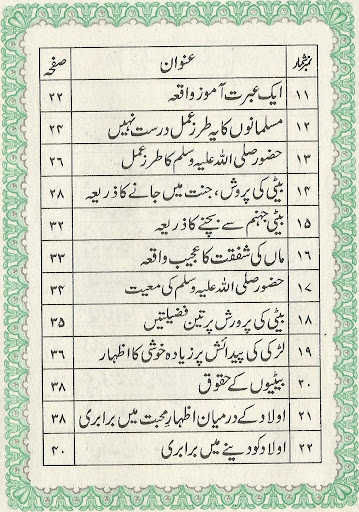 نمبرشمار عنوان صفحہ
۱۱ ایک عبرت آموز واقعہ ۲۲
۱۲ مسلمانوں کا یہ طرزِ عمل درست نہیں ۲۴
۱۳ حضور صلی اللہ علیہ وسلم کا طرز عمل ۲۶
۱۴ بیٹی کی پروش، جنت میں جانے کا ذریعہ ۲۸
۱۵ بیٹی جہنم سے بچنے کا ذریعہ ۳۲
۱۶ ماں کی شفقت کا عجیب واقعہ ۳۳
۱۷ حضور صلی اللہ علیہ وسلم کی معیت ۳۴
۱۸ بیٹی کی پرورش پر تین فضیلتیں ۳۵
۱۹ لڑکی کی پیدائش پر زیادہ خوشی کا اظہار ۳۶
۲۰ بیٹیوں کے حقوق ۳۸
۲۱ اولاد کے درمیان اظہارِ محبت میں برابری ۳۸
۲۲ اولاد کو دینے میں برابری ۴۰